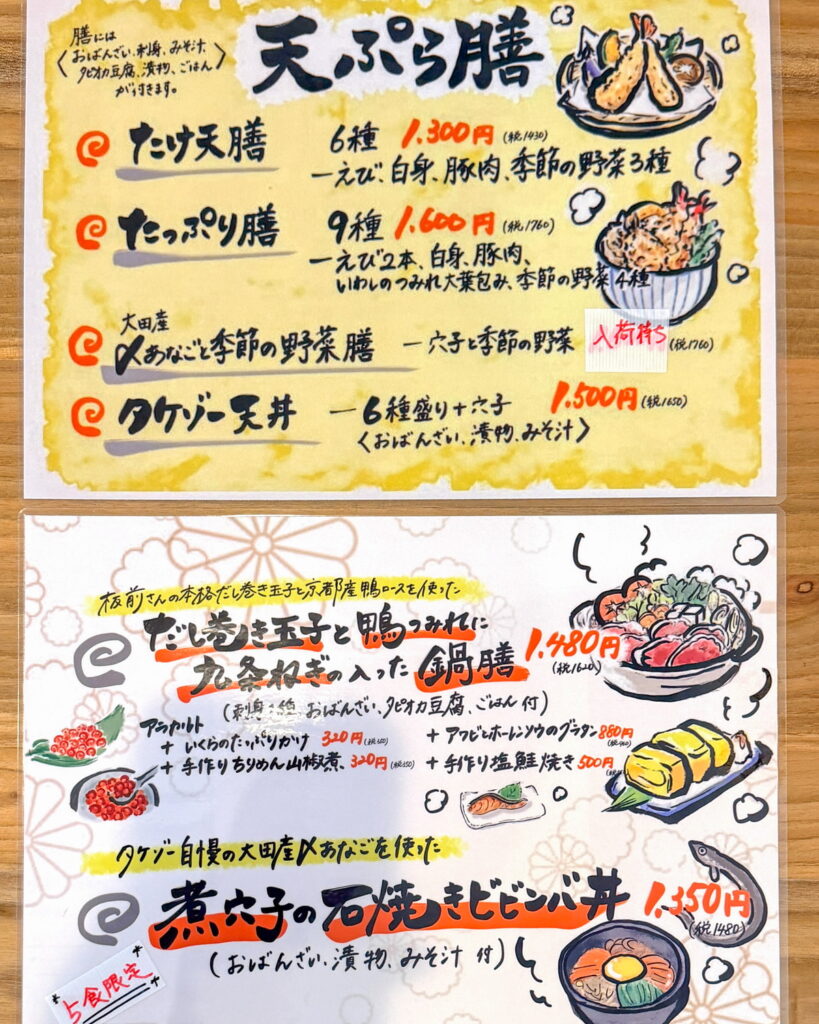 天ぷら膳
膳には
おばんざい、刺身、みそ汁、
タピオカ豆腐、漬物、ごはん
が付きます。
たけ天膳 6種 1.300円 (税1430)
ーえび、白身、豚肉、季節の野菜3種
たっぷり膳 9種 1.600円 (税1760)
ーえび2本、白身、豚肉、
いわしのつみれ大葉包み、季節の野菜4種
大田産
〆あなごと季節の野菜膳 ー穴子と季節の野菜 入荷待ち (税1760)
タケゾー天丼 ー6種盛り+穴子 1.500円 (税1650)
〈おばんざい、漬物、みそ汁〉
板前さんの本格だし巻き玉子と京都産鴨ロースを使った
だし巻き玉子と鴨つみれに
九条ねぎの入った鍋膳 1.480円
(税1620)
(刺身2種 おばんざい、タピオカ豆腐、ごはん 付)
アラカルト
+ いくらのたっぷりかけ 320円 + アワビとホーレンソウのグラタン 880円
+ 手作りちりめん山椒煮、320円 + 手作り塩鮭焼き 500円
タケゾー自慢の大田産〆あなごを使った
煮穴子の石焼きビビンバ丼 1.350円
(税1480)
(おばんざい、漬物、みそ汁 付)
*5食限定*